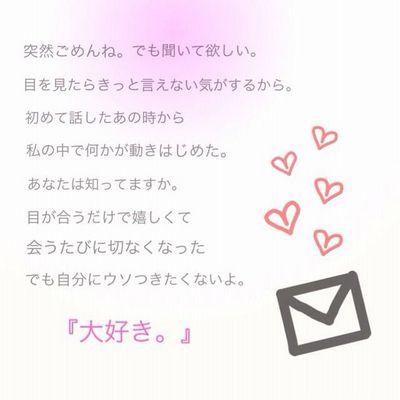 突然ごめんね。でも聞いて欲しい。
目を見たらきっと言えない気がするから。
初めて話したあの時から
私の中で何かが動きはじめた。
あなたは知ってますか。
目が合うだけで嬉しくて
会うたびに切なくなった
でも自分にウソつきたくないよ。
『大好き。』